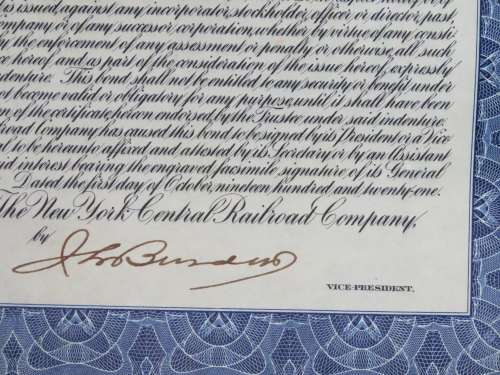 is issued, against any incorporator, stockholder, officer or director, past,
ompany or of any successor corporation, whether by virtue of any consti-
by the enforcement of any assessment or penalty or otherwise, all such
ce hereof and as part of the consideration of the issue hereof, expressly
indenture. This bond shall not be entitled to any security or benefit under
ot become valid or obligatory for any purpose, until it shall have been
n of the certificate hereon endorsed, by the Trustee under said indenture.
road Company has caused this bond to be signed by its President or a Vice
al to be hereunto affixed and attested by its Secretary or by an Assistant
id interest bearing the engraved facsimile signature of its General
Dated the first day of October, nineteen hundred and twenty-one.
The New York Central Railroad Company,
by
VICE-PRESIDENT.